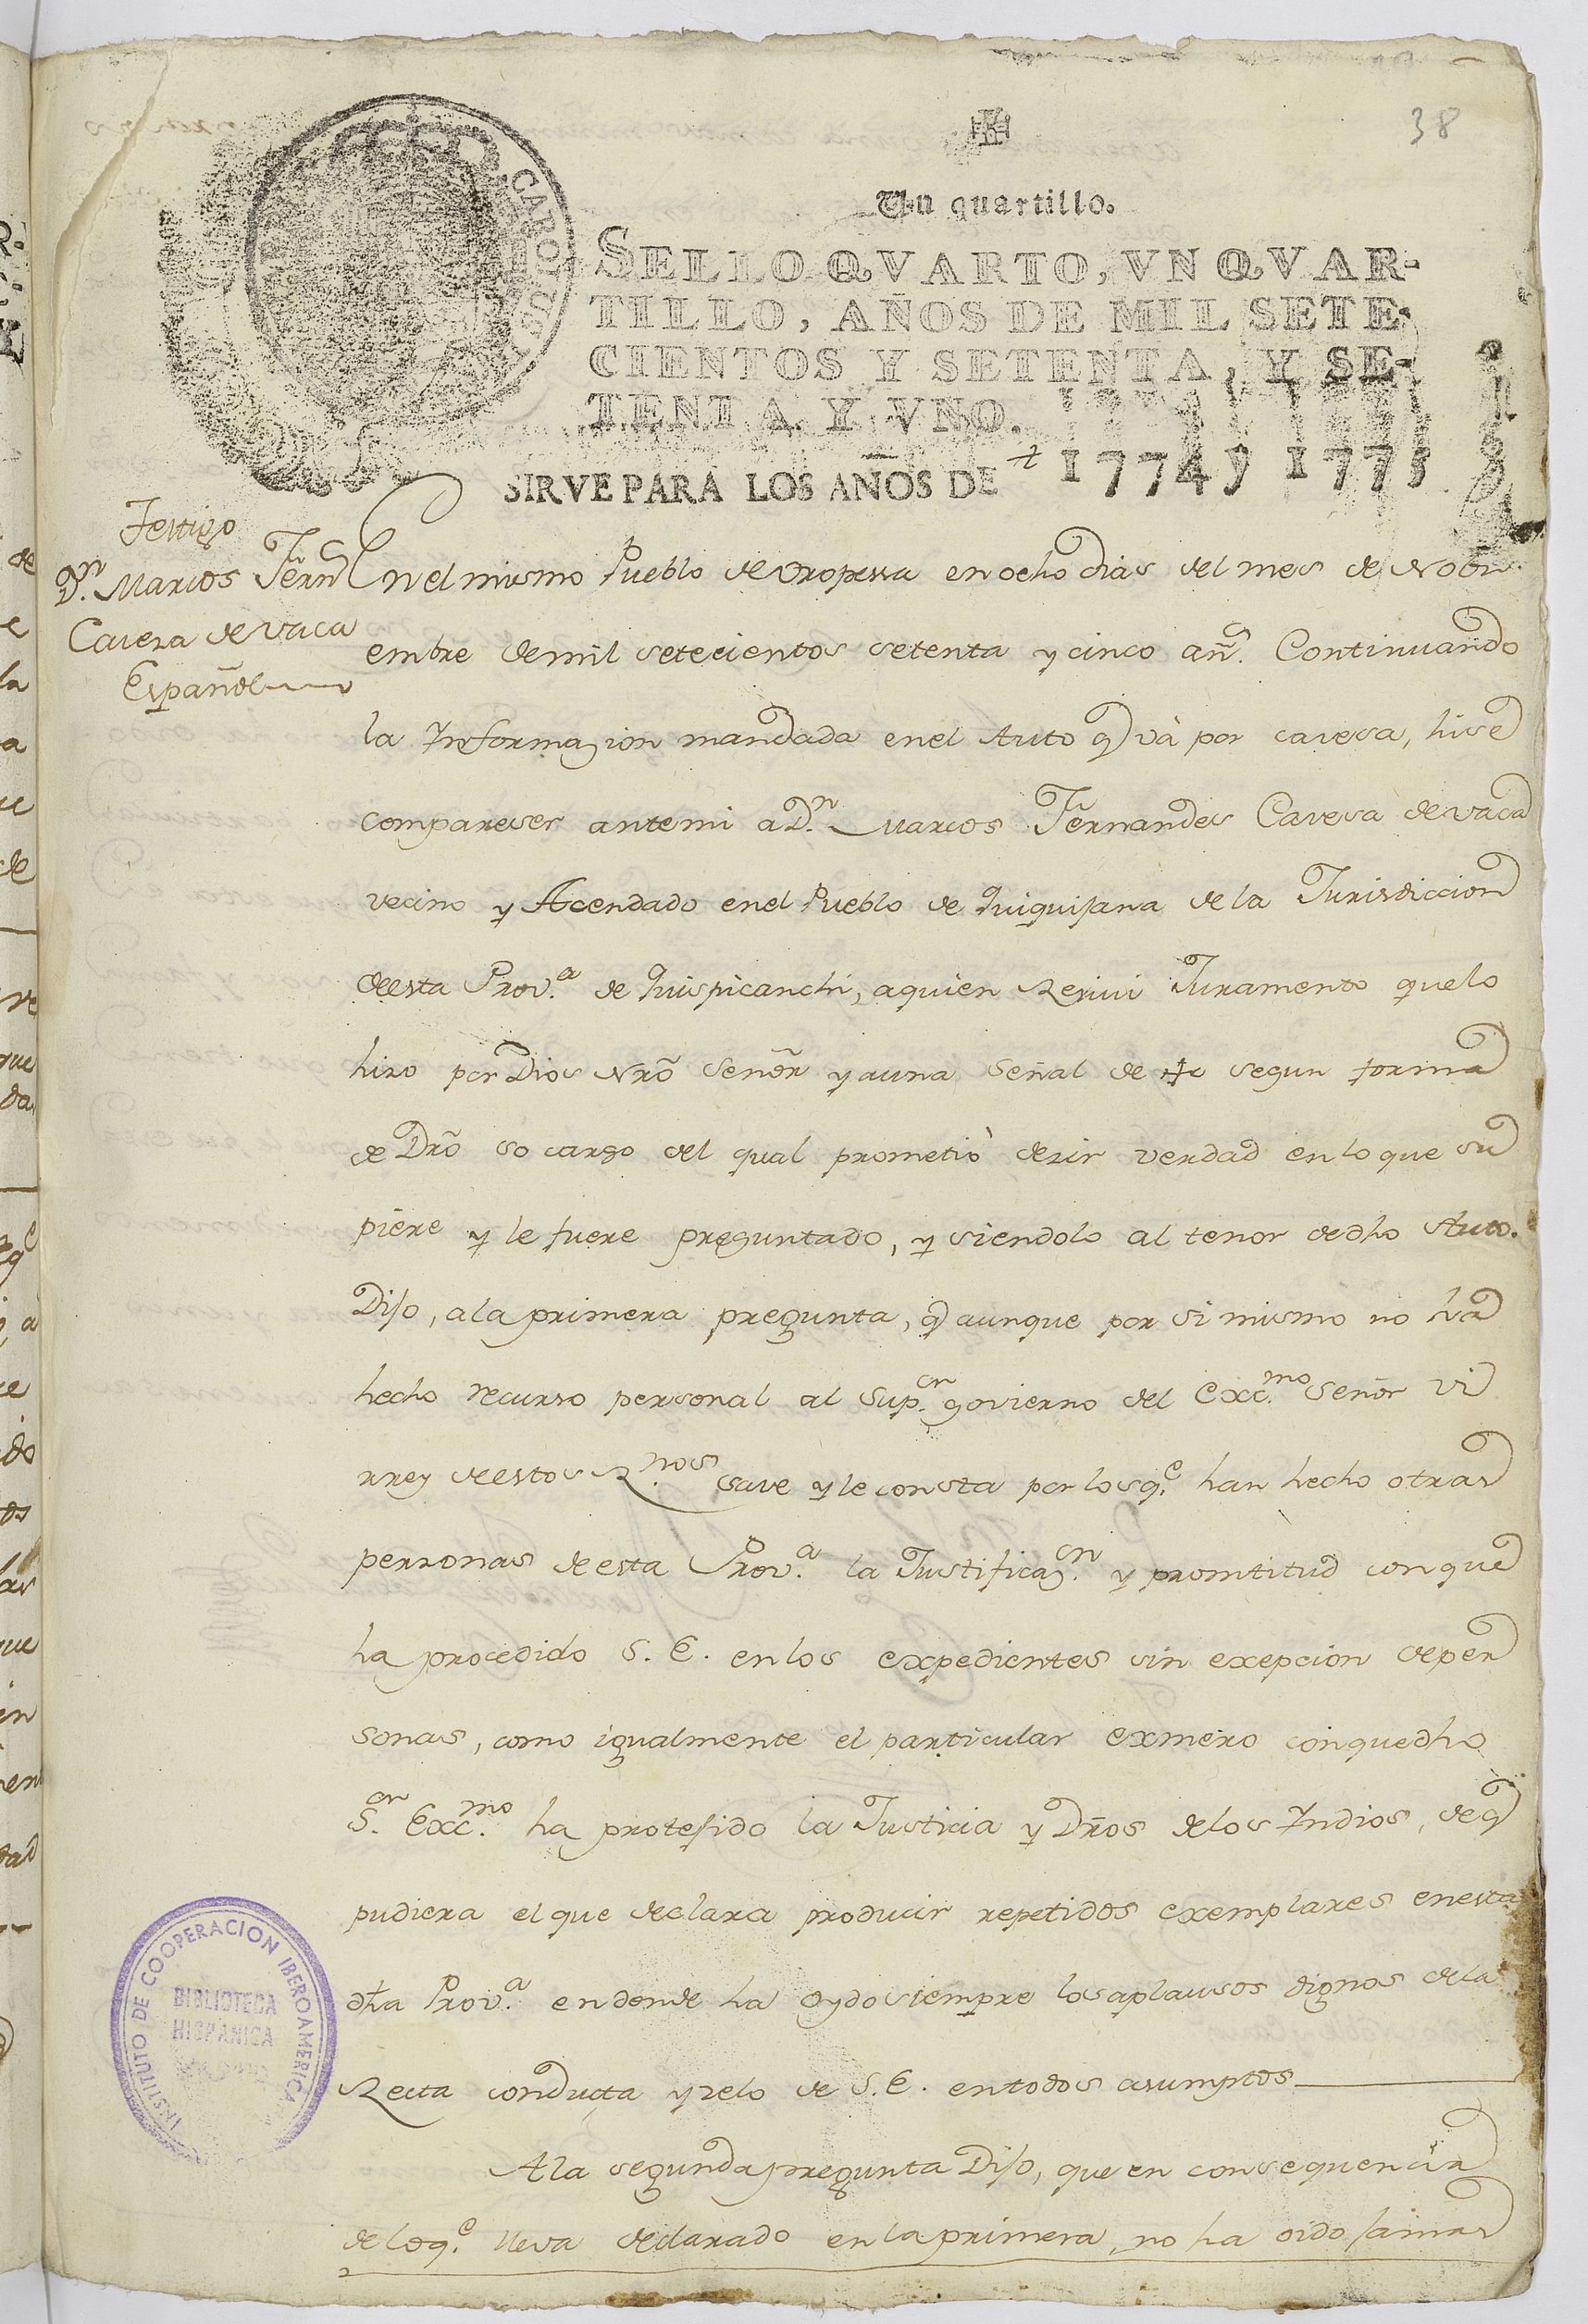 38
Un quartillo.
SELLO QVARTO, VN QVAR-
TILLO, AÑOS DE MIL SETE-
CIENTOS Y SETENTA, Y SE-
TENTA Y VNO.
SIRVE PARA LOS AÑOS DE 1774 y 1775
CAROLUS
Testigo
Dn. Marcos Fern̄
Caveza de vaca
Español
En el mismo Pueblo de Oropessa en ocho dias del mes de Novi
embre de mil setecientos setenta y cinco añs. Continuando
la Informazion mandada en el Auto q và por cavesa, hise
compareser ante mi a Dn. Marcos Fernandes Cavesa de vaca
vecino y Acendado en el Pueblo de Quiquijana de la Jurisdiccion
de esta Prova. de Quispicanchi, a quien Resiví Juramento que lo
hizo por Dios Nrõ Señor y a una Señal de ✝ segun forma
de Drõ so cargo del qual prometiò dezir verdad en lo que su
piere y le fuere preguntado, y siendolo al tenor de dho Auto.
Dijo, a la primera pregunta, q aunque por si mismo no ha
hecho recurso personal al Supor. govierno del Excmo. Señor Vi
rrey de estos Rnos. save y le consta por los qe. han hecho otras
personas de esta Prova. la Justificazn. y promtitud con que
ha procedido S. E. en los expedientes sin exepcion de per
sonas, como igualmente el particular exmero con que dho
Sor. Excmo. ha protejido la Justicia y Drños de los Indios, de q
pudiera el que declara producir repetidos exemplares en esta
dha Prova. en donde ha oydo siempre los aplausos dignos de la
Recta conducta y zelo de S. E. en todos asumptos
A la segunda pregunta Dijo, que en consequencia
de lo qe. lleva declarado en la primera, no ha oido jamas
INSTITUTO DE COOPERACION IBEROAMERICANA
BIBLIOTECA
HISPANICA